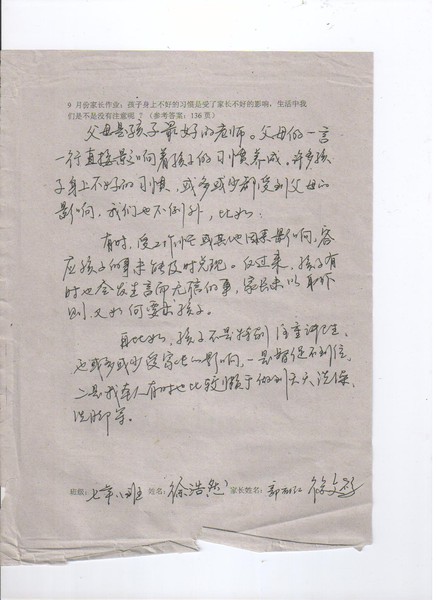 9 月份家长作业:孩子身上不好的习惯是受了家长不好的影响,生活中我
们是不是没有注意呢?(参考答案:136 页)
父母是孩子最好的老师。父母的一言
一行直接影响着孩子的习惯养成。许多孩
子身上不好的习惯,或多或少都受到父母的
影响,我们也不例外,比如:
有时,受工作忙或其他因素影响,答
应孩子的事未能及时兑现。反过来,孩子有
时也会发生言而无信的事,家长未以身作
则,又如何要求孩子。
再比如,孩子不是特别注重卫生,
也或多或少受家长的影响,一是督促不到位,
二是我本人有时也比较懒于做到天天洗澡、
洗脚等。
班级:七年八班 姓名:徐浩然 家长姓名: